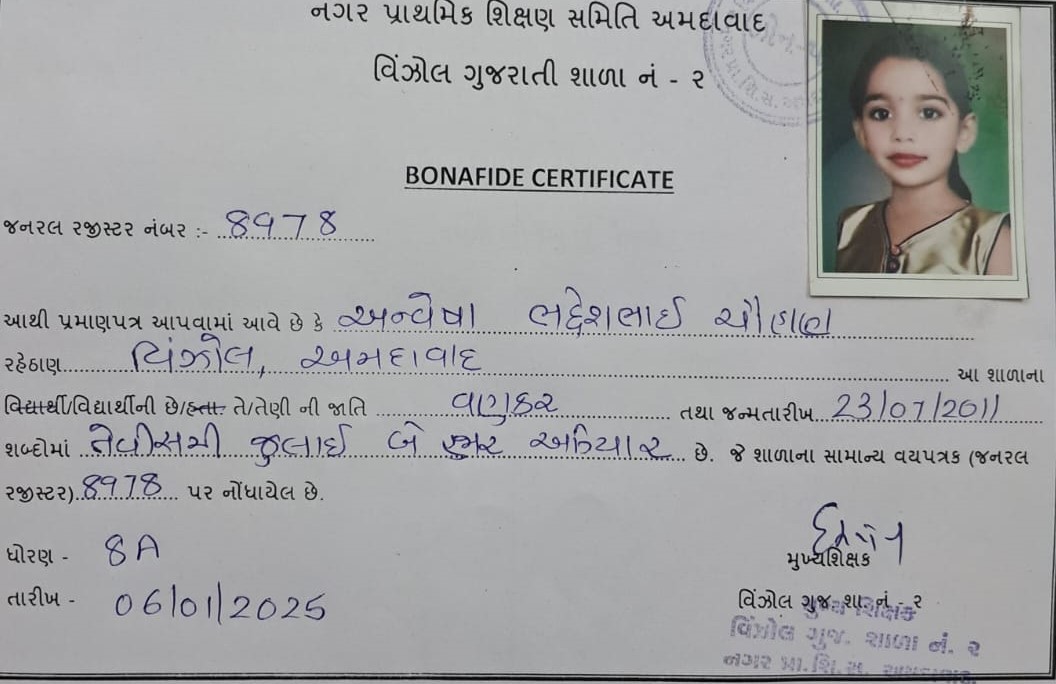 નગર પ્રાથમિક શિક્ષણ સમિતિ અમદાવાદ
વિંઝોલ ગુજરાતી શાળા નં - ૨
BONAFIDE CERTIFICATE
જનરલ રજીસ્ટર નંબર :- 8978
આથી પ્રમાણપત્ર આપવામાં આવે છે કે અન્વેષા ભદ્રેશભાઈ ચૌહાણ
રહેઠાણ વિંઝોલ, અમદાવાદ આ શાળાના
વિદ્યાર્થી/વિદ્યાર્થીની છે/હતા. તે/તેણી ની જાતિ વણકર તથા જન્મતારીખ 23/07/2011
શબ્દોમાં તેવીસમી જુલાઈ બે હજાર અગિયાર છે. જે શાળાના સામાન્ય વયપત્રક (જનરલ
રજીસ્ટર) 8978 પર નોંધાયેલ છે.
ધોરણ - 8A
તારીખ - 06/01/2025
મુખ્યશિક્ષક
વિંઝોલ ગુજ. શા. નં - ૨
મુખ્ય શિક્ષક
વિંઝોલ ગુજ. શાળા નં. ૨
નગર પ્રા.શિ.સ. અમદાવાદ.